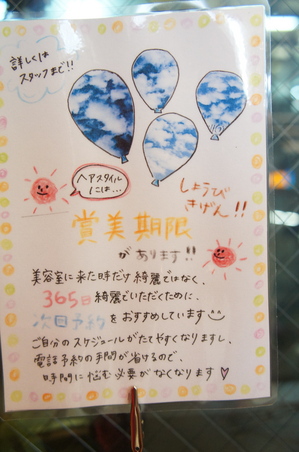 詳しくは
スタッフまで!!
ヘアスタイル
には…
しょうび
きげん!!
賞美期限
があります!!
美容室に来た時だけ綺麗ではなく、
365日綺麗でいただくために、
次回予約をおすすめしています^^
ご自分のスケジュールがたてやすくなりますし、
電話予約の手間が省けるので、
時間に悩む必要がなくなります♡